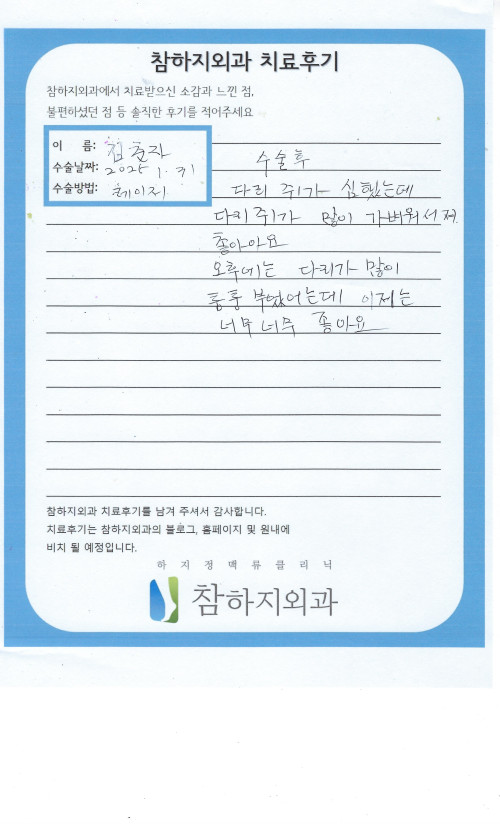 참하지외과 치료후기
참하지외과에서 치료받으신 소감과 느낀 점,
불편하셨던 점 등 솔직한 후기를 적어주세요
이 름: 김춘자
수술날짜: 2025 1. 31
수술방법: 레이저
수술후
다리 쥐가 심했는데
다리 쥐가 많이 가벼워서 저
좋아아요
오후에는 다리가 많이
퉁퉁 부었어는데 이제는
너무 너무 좋아요
참하지외과 치료후기를 남겨 주셔서 감사합니다.
치료후기는 참하지외과의 블로그, 홈페이지 및 원내에
비치 될 예정입니다.
하지정맥류클리닉
참하지외과